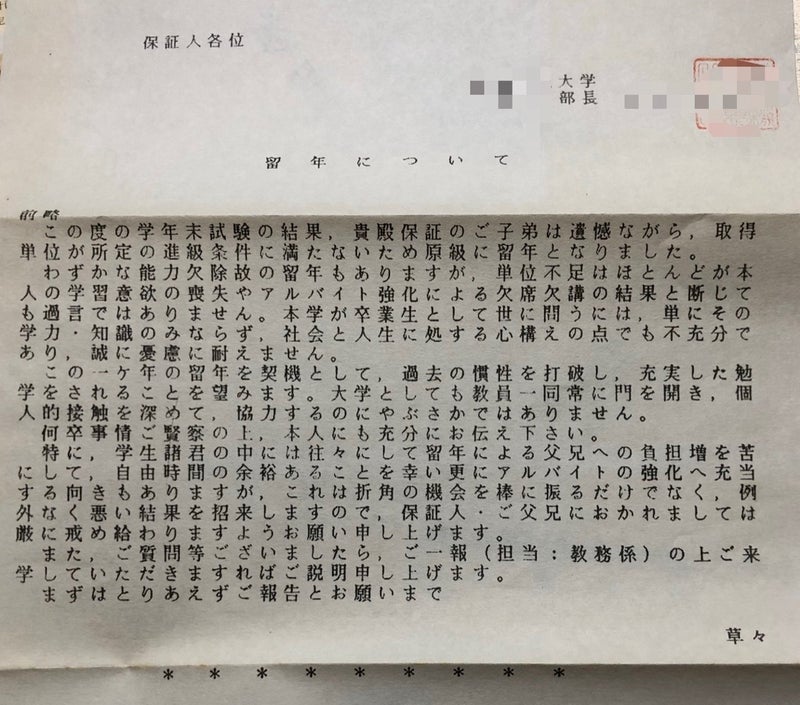 保証人各位
大学
部長
留年について
前略
この度の学年末試験の結果，貴殿保証のご子弟は遺憾ながら，取得
単位が所定の進級条件に満たないため原級に留年となりました。
わずかな能力欠除故の留年もありますが，単位不足はほとんどが本
人の学習意欲の喪失やアルバイト強化による欠席欠講の結果と断じて
も過言ではありません。本学が卒業生として世に問うには，単にその
学力・知識のみならず，社会と人生に処する心構えの点でも不充分で
あり，誠に憂慮に耐えません。
この一ケ年の留年を契機として，過去の慣性を打破し，充実した勉
学をされることを望みます。大学としても教員一同常に門を開き，個
人的接触を深めて，協力するのにやぶさかではありません。
何卒事情ご賢察の上，本人にも充分にお伝え下さい。
特に，学生諸君の中には往々にして留年による父兄への負担増を苦
にして，自由時間の余裕あることを幸い更にアルバイトの強化へ充当
する向きもありますが，これは折角の機会を棒に振るだけでなく，例
外なく悪い結果を招来しますので，保証人・ご父兄におかれましては
厳に戒め給わりますようお願い申し上げます。
また，ご質問等ございましたら，ご一報（担当：教務係）の上ご来
学していただきますればご説明申し上げます。
まずはとりあえずご報告とお願いまで
草々
＊＊＊＊＊＊＊＊＊